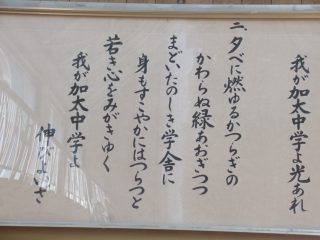 我が加太中学よ光あれ
二、夕べに燃ゆるかつらぎの
かわらぬ緑あおぎつつ
まどいたのしき学舎に
身もすこやかにはつらつと
若き心をみがきゆく
我が加太中学よ
伸びよいざ